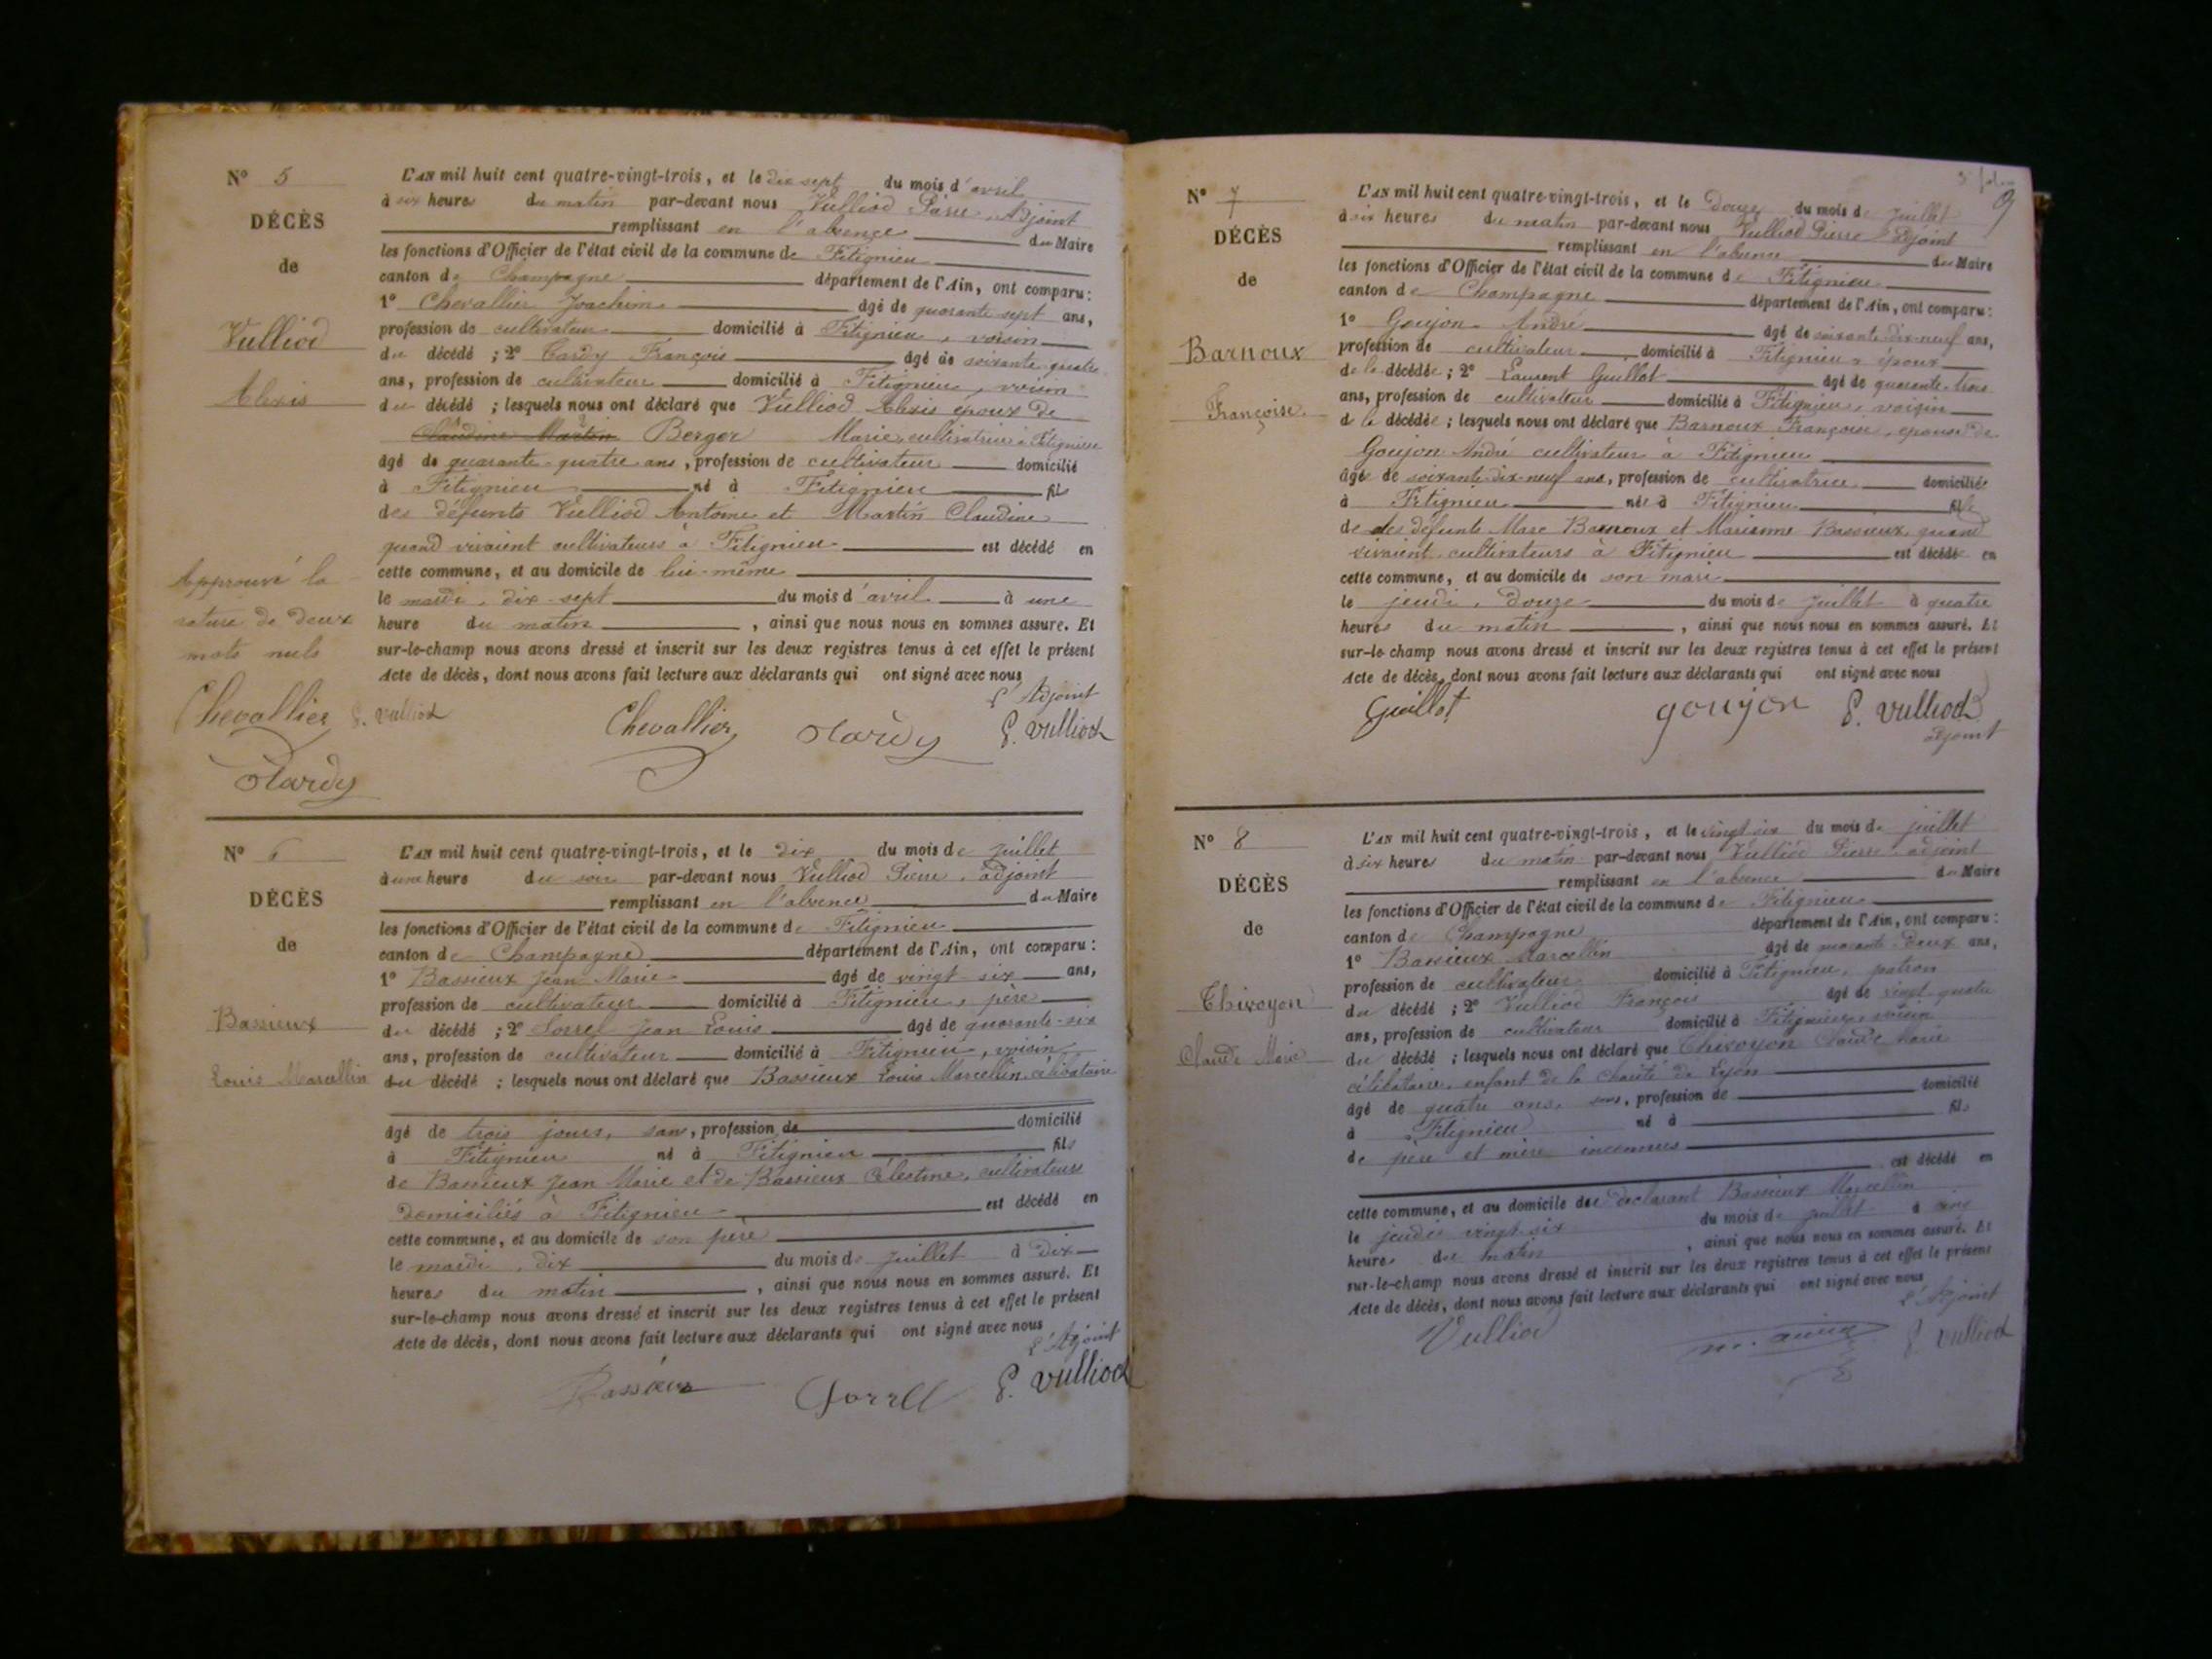 N° 5
DÉCÈS
de
Vulliod
Alexis
L'AN mil huit cent quatre-vingt-trois, et le dix sept du mois d'avril
à six heures du matin par-devant nous Vulliod Pierre, Adjoint
remplissant en l'absence du Maire
les fonctions d'Officier de l'état civil de la commune de Fitignieu
canton de Champagne département de l'Ain, ont comparu :
1° Chevallier Joachim âgé de quarante sept ans,
profession de cultivateur domicilié à Fitignieu, voisin
du décédé ; 2° Tardy François âgé de soixante quatre
ans, profession de cultivateur domicilié à Fitignieu, voisin
du décédé ; lesquels nous ont déclaré que Vulliod Alexis époux de
Claudine Martin Berger Marie, cultivatrice à Fitignieu
âgé de quarante-quatre ans, profession de cultivateur domicilié
à Fitignieu né à Fitignieu fils
des défunts Vulliod Antoine et Martin Claudine
quand vivaient cultivateurs à Fitignieu est décédé en
cette commune, et au domicile de lui-même
le mardi, dix-sept du mois d'avril à une
heure du matin, ainsi que nous nous en sommes assuré. Et
sur-le-champ nous avons dressé et inscrit sur les deux registres tenus à cet effet le présent
Acte de décès, dont nous avons fait lecture aux déclarants qui ont signé avec nous
Approuvé la
rature de deux
mots nuls
Chevallier P. Vulliod
Tardy
L'Adjoint
Chevallier Tardy P. Vulliod
N° 6
DÉCÈS
de
Bassieux
Louis Marcellin
L'AN mil huit cent quatre-vingt-trois, et le dix du mois de juillet
à une heure du soir par-devant nous Vulliod Pierre, adjoint
remplissant en l'absence du Maire
les fonctions d'Officier de l'état civil de la commune de Fitignieu
canton de Champagne département de l'Ain, ont comparu :
1° Bassieux Jean Marie âgé de vingt six ans,
profession de cultivateur domicilié à Fitignieu, père
du décédé ; 2° Sorrel Jean Louis âgé de quarante-six
ans, profession de cultivateur domicilié à Fitignieu, voisin
du décédé ; lesquels nous ont déclaré que Bassieux Louis Marcellin, célibataire
âgé de trois jours, sans, profession de domicilié
à Fitignieu né à Fitignieu fils
de Bassieux Jean Marie et de Bassieux Célestine, cultivateurs
domiciliés à Fitignieu est décédé en
cette commune, et au domicile de son père
le mardi, dix du mois de juillet à dix
heures du matin, ainsi que nous nous en sommes assuré. Et
sur-le-champ nous avons dressé et inscrit sur les deux registres tenus à cet effet le présent
Acte de décès, dont nous avons fait lecture aux déclarants qui ont signé avec nous
L'Adjoint
Bassieux Sorrel P. Vulliod
N° 7
DÉCÈS
de
Barnoux
Françoise
9
L'AN mil huit cent quatre-vingt-trois, et le Douze du mois de juillet
à six heures du matin par-devant nous Vulliod Pierre Adjoint
remplissant en l'absence du Maire
les fonctions d'Officier de l'état civil de la commune de Fitignieu
canton de Champagne département de l'Ain, ont comparu :
1° Goujon André âgé de soixante-dix-neuf ans,
profession de cultivateur domicilié à Fitignieu époux
de la décédée ; 2° Laurent Guillot âgé de quarante-trois
ans, profession de cultivateur domicilié à Fitignieu, voisin
de la décédée ; lesquels nous ont déclaré que Barnoux Françoise, épouse de
Goujon André cultivateur à Fitignieu
âgée de soixante-dix-neuf ans, profession de cultivatrice domiciliée
à Fitignieu née à Fitignieu fille
de des défunts Marc Barnoux et Marianne Bassieux, quand
vivaient cultivateurs à Fitignieu est décédée en
cette commune, et au domicile de son mari
le jeudi, douze du mois de juillet à quatre
heures du matin, ainsi que nous nous en sommes assuré. Et
sur-le-champ nous avons dressé et inscrit sur les deux registres tenus à cet effet le présent
Acte de décès, dont nous avons fait lecture aux déclarants qui ont signé avec nous
Guillot goujon P. Vulliod
adjoint
N° 8
DÉCÈS
de
Thivoyon
Claude Marie
L'AN mil huit cent quatre-vingt-trois, et le vingt six du mois de juillet
à six heures du matin par-devant nous Vulliod Pierre adjoint
remplissant en l'absence du Maire
les fonctions d'Officier de l'état civil de la commune de Fitignieu
canton de Champagne département de l'Ain, ont comparu :
1° Bassieux Marcellin âgé de quarante-deux ans,
profession de cultivateur domicilié à Fitignieu, patron
du décédé ; 2° Vulliod François âgé de vingt quatre
ans, profession de cultivateur domicilié à Fitignieu, voisin
du décédé ; lesquels nous ont déclaré que Thivoyon Claude Marie
célibataire, enfant de la charité de Lyon
âgé de quatre ans, sans, profession de domicilié
à Fitignieu né à fils
de père et mère inconnus
est décédé en
cette commune, et au domicile du déclarant Bassieux Marcellin
le jeudi vingt-six du mois de juillet à cinq
heures du matin, ainsi que nous nous en sommes assuré. Et
sur-le-champ nous avons dressé et inscrit sur les deux registres tenus à cet effet le présent
Acte de décès, dont nous avons fait lecture aux déclarants qui ont signé avec nous
L'Adjoint
Vulliod P. Vulliod